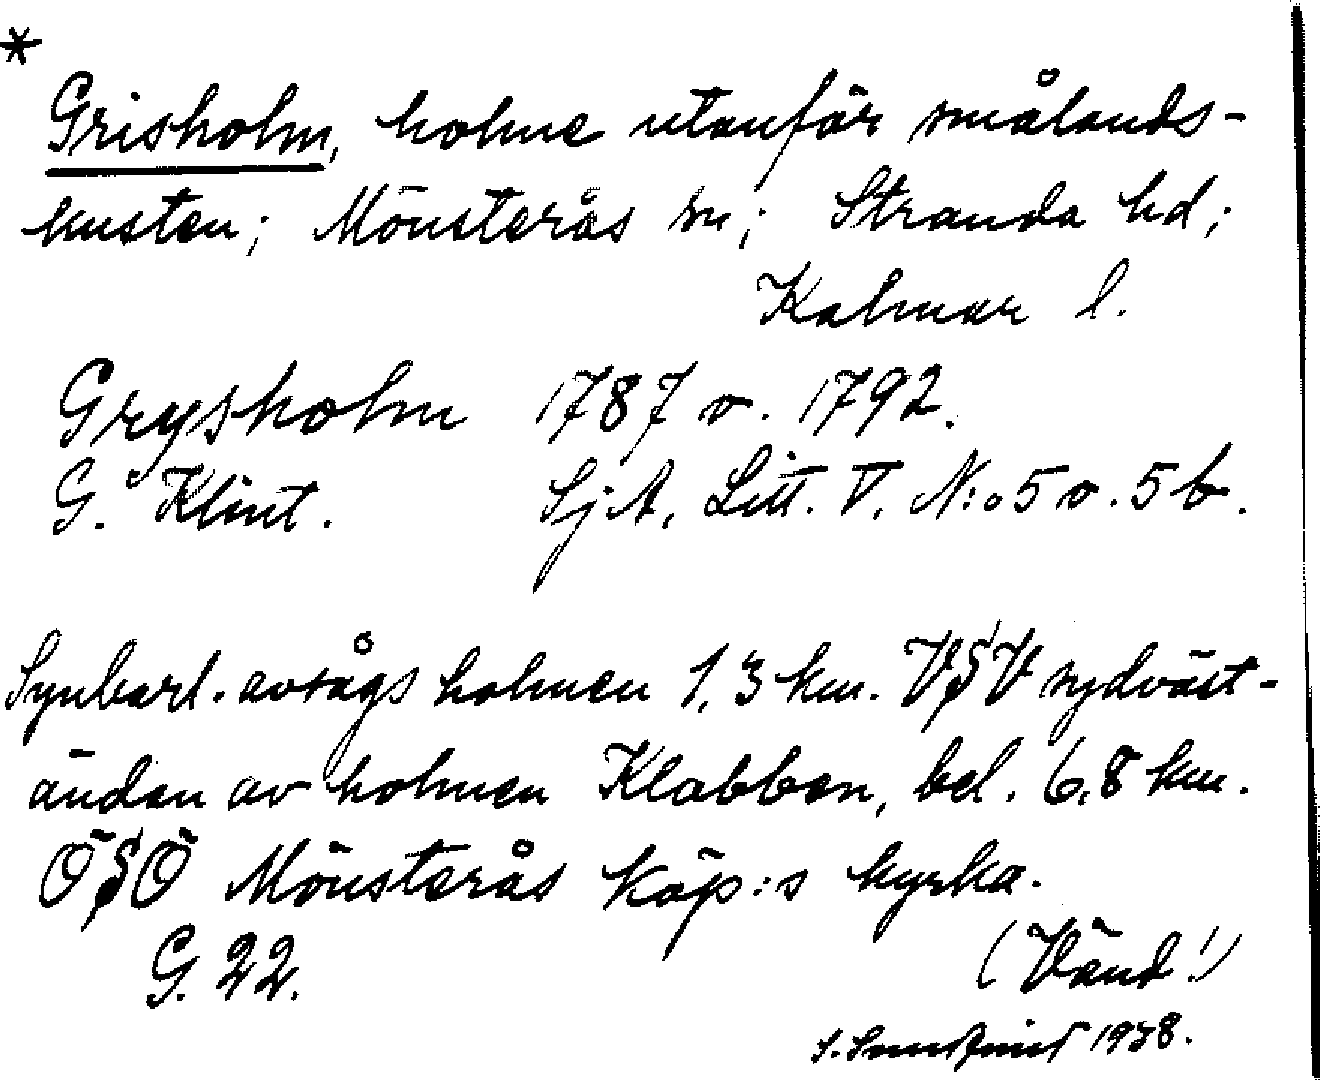 *
Grisholm, holme utanför smålands-
kusten; Mönsterås sn; Stranda hd;
Kalmar l.
Grysholm 1787 o. 1792.
G. Klint. SjA, Litt. V, N:o 5 o. 5 b.
Synbarl. avsågs holmen 1,3 km. VSV sydväst-
änden av holmen Klabben, bel. 6,8 km.
ÖSÖ Mönsterås köp:s kyrka.
G. 22. (Vänd!)
1938.